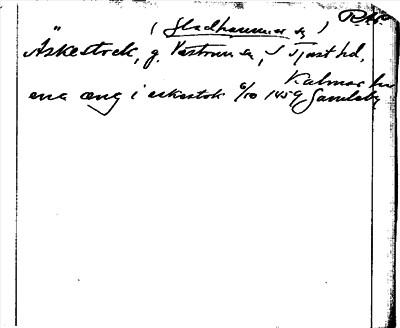 (Gladhammar sn)
Äskestock, g. Västrum sn, S Tjust hd,
Kalmar län
ena æng i eskestok 6/10 1459 Gamleby